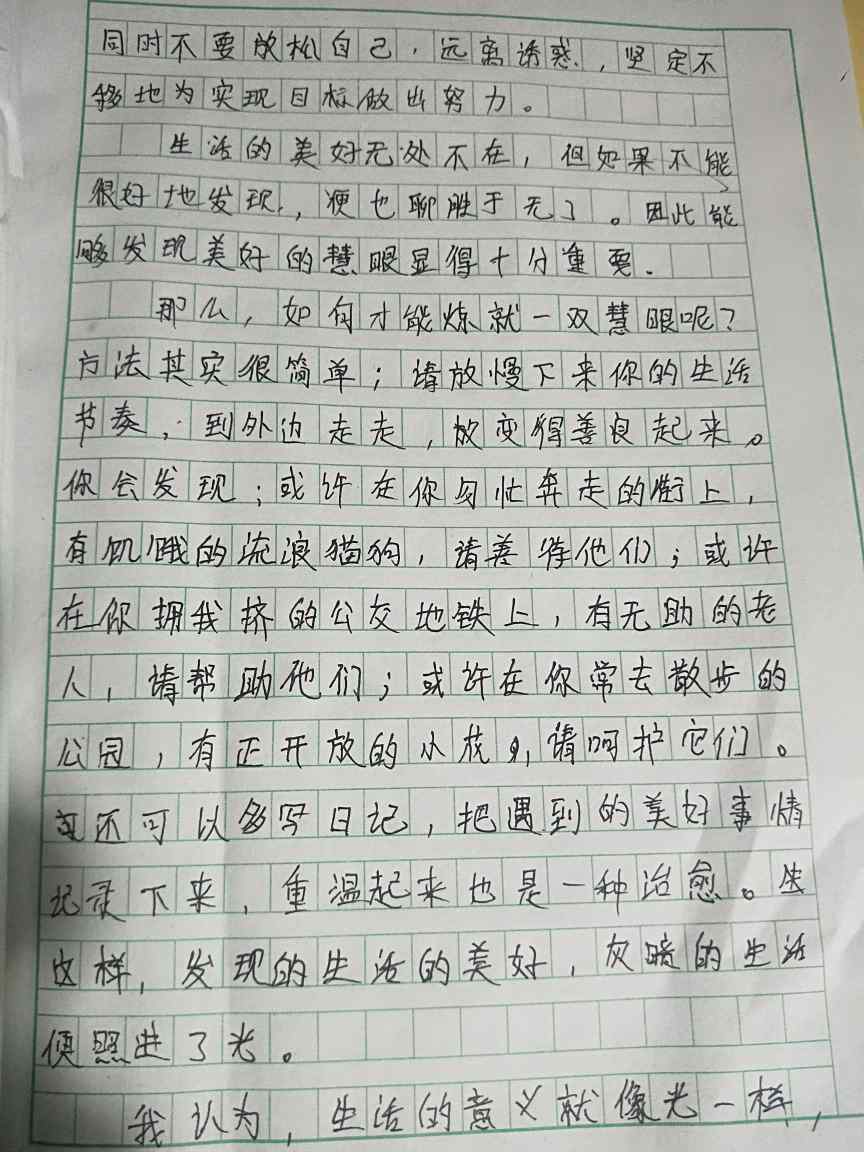 同时不要放松自己，远离诱惑，坚定不
移地为实现目标做出努力。
生活的美好无处不在，但如果不能
很好地发现，便也聊胜于无了。因此能
够发现美好的慧眼显得十分重要.
那么，如何才能炼就一双慧眼呢？
方法其实很简单；请放慢下来你的生活
节奏，到外边走走，放变得善良起来。
你会发现；或许在你匆忙奔走的街上，
有饥饿的流浪猫狗，请善待他们；或许
在你拥我挤的公交地铁上，有无助的老
人，请帮助他们；或许在你常去散步的
公园，有正开放的小花，请呵护它们。
还可以多写日记，把遇到的美好事情
记录下来，重温起来也是一种治愈。生
这样，发现的生活的美好，灰暗的生活
便照进了光。
我认为，生活的意义就像光一样，